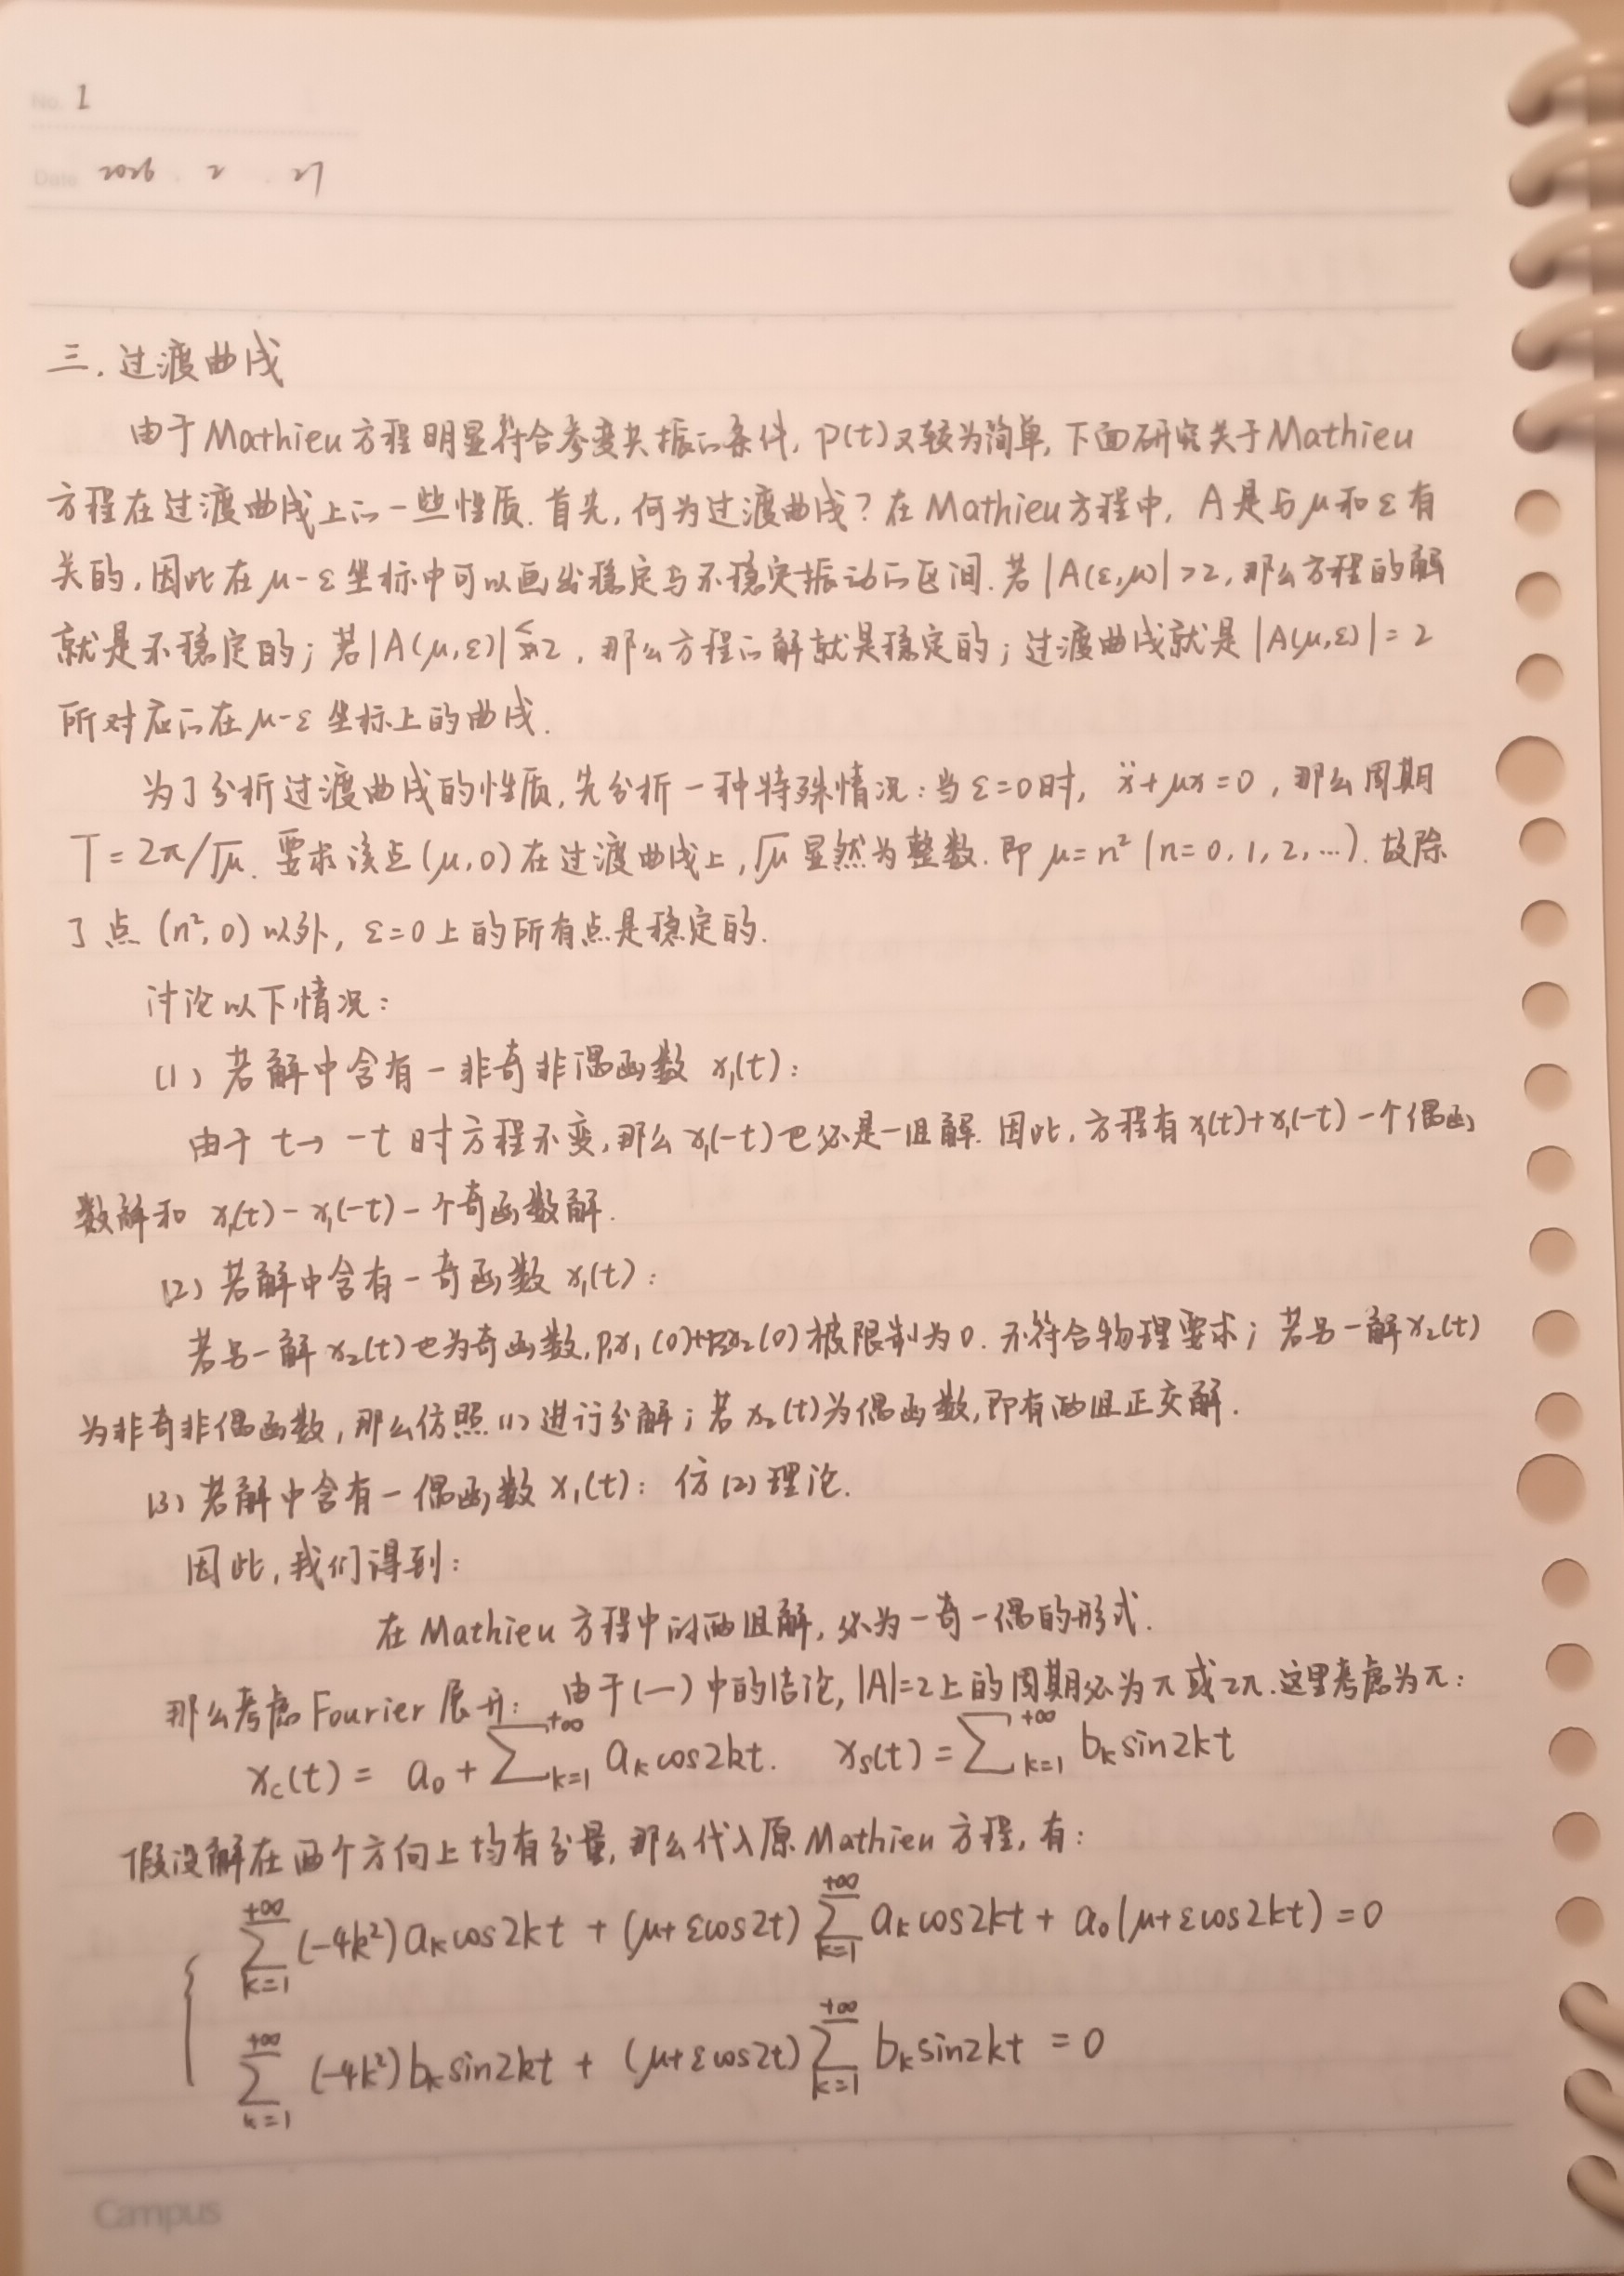 No. 1
Date 2026 . 2 . 27
三. 过渡曲线
由于Mathieu方程明显符合参变共振的条件, p(t)又较为简单, 下面研究关于Mathieu
方程在过渡曲线上的一些性质. 首先, 何为过渡曲线? 在Mathieu方程中, A是与μ和ε有
关的, 因此在μ-ε坐标中可以画出稳定与不稳定振动的区间. 若|A(ε,μ)|>2, 那么方程的解
就是不稳定的; 若|A(μ,ε)|<2, 那么方程的解就是稳定的; 过渡曲线就是|A(μ,ε)|=2
所对应的在μ-ε坐标上的曲线.
为了分析过渡曲线的性质, 先分析一种特殊情况: 当ε=0时, ẍ+μx=0, 那么周期
T=2π/√μ. 要求该点(μ,0)在过渡曲线上, √μ显然为整数. 即μ=n² (n=0,1,2,…). 故除
了点(n²,0)以外, ε=0上的所有点是稳定的.
讨论以下情况:
(1) 若解中含有一非奇非偶函数x₁(t):
由于t→-t时方程不变, 那么x₁(-t)也必是一组解. 因此, 方程有x₁(t)+x₁(-t)一个偶函
数解和 x₁(t)-x₁(-t)一个奇函数解.
(2) 若解中含有一奇函数x₁(t):
若另一解x₂(t)也为奇函数, p₁x₁(0)+p₂x₂(0)被限制为0. 不符合物理要求; 若另一解x₂(t)
为非奇非偶函数, 那么仿照(1)进行分解; 若x₂(t)为偶函数, 即有两组正交解.
(3) 若解中含有一偶函数x₁(t): 仿(2)理论.
因此, 我们得到:
在Mathieu方程中的两组解, 必为一奇一偶的形式.
那么考虑Fourier展开: 由于(一)中的结论, |A|=2上的周期必为π或2π. 这里考虑为π:
x_c(t) = a₀ + ∑_{k=1}^{+∞} a_k cos2kt. x_s(t) = ∑_{k=1}^{+∞} b_k sin2kt
假设解在两个方向上均有分量, 那么代入原Mathieu方程, 有:
∑_{k=1}^{+∞} (-4k²) a_k cos2kt + (μ+εcos2t) ∑_{k=1}^{+∞} a_k cos2kt + a₀(μ+εcos2kt) = 0
∑_{k=1}^{+∞} (-4k²) b_k sin2kt + (μ+εcos2t) ∑_{k=1}^{+∞} b_k sin2kt = 0
Campus